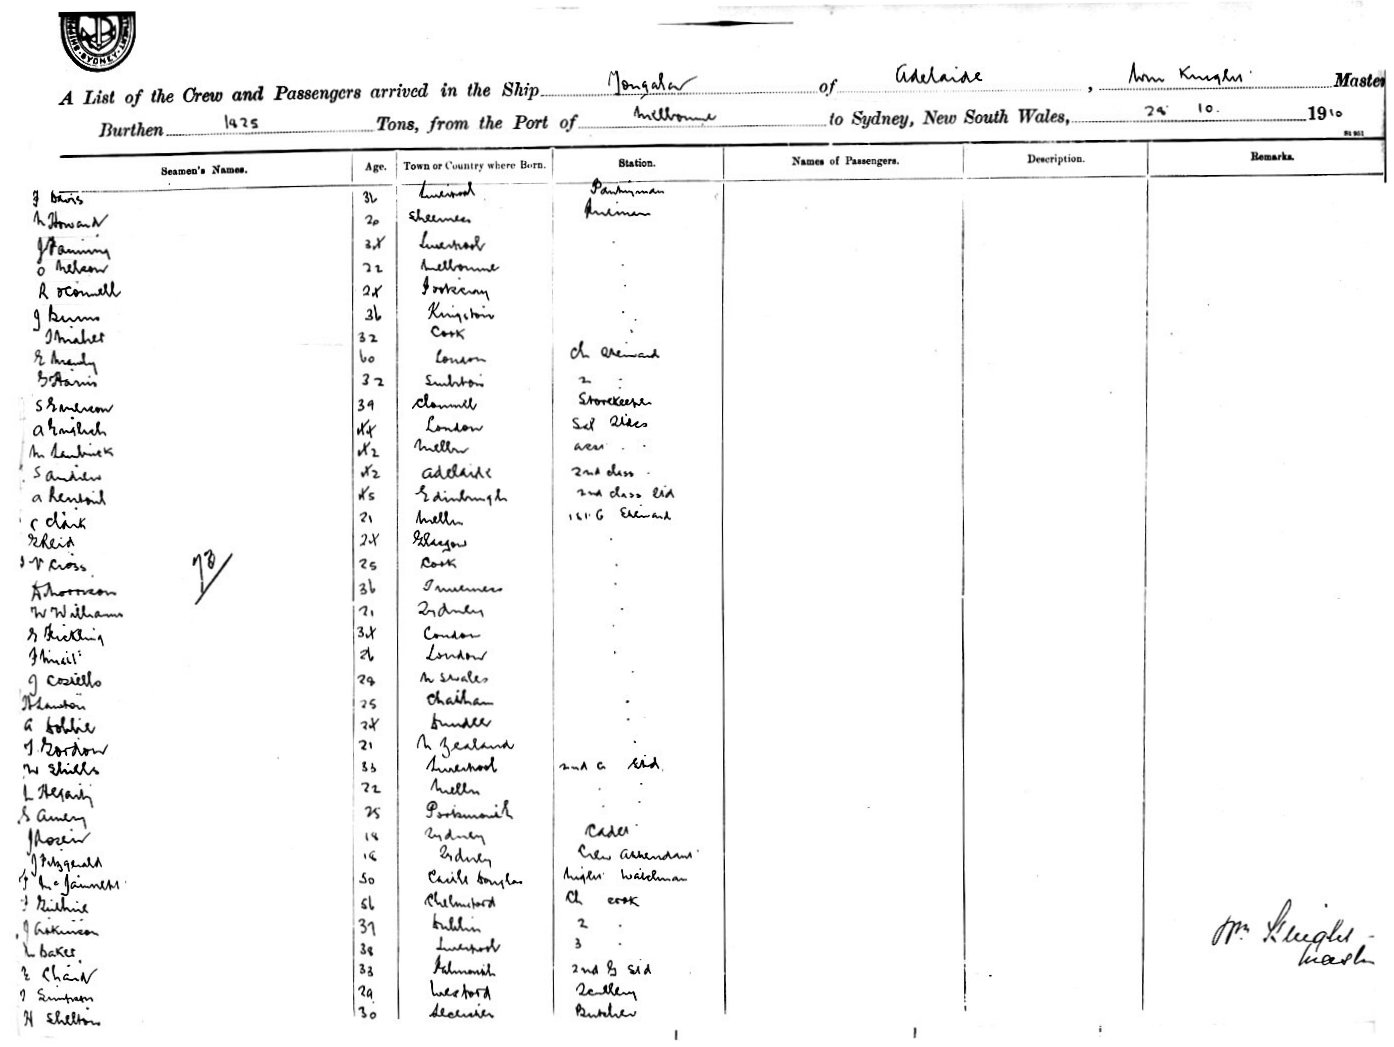 SYDNEY
A List of the Crew and Passengers arrived in the Ship Yongala of Adelaide, Wm Knight Master
Burthen 1825 Tons, from the Port of Melbourne to Sydney, New South Wales, 28 10. 1910
Seamen's Names. Age. Town or Country where Born. Station. Names of Passengers. Description. Remarks.
F Davis 36 Liverpool Pantryman
N Howard 20 Sheerness Firemen
J Fanning 34 Liverpool
O Nelson 22 Melbourne
R O'Connell 24 Footscray
J Burns 36 Kingston
J Maher 32 Cork
E Mandy 60 London Ch Steward
G Harris 32 2
S Emerson 39 Clonmell Storekeeper
A English 44 London
42 Melbn
S Andrew 42 Adelaide 2nd class
A 45 Edinburgh 2nd class Std
C Clark 21 Melbn Steward
E Reid 24 Glasgow
V Cross 25 Cork
73
D Morrison 36 Inverness
W Williams 21 Sydney
G Fickling 34 London
F 26 London
J Costello 28 N S Wales
H Lawton 25 Chatham
A Dobbie 24 Dundee
J Gordon 21 N Zealand
W Shiells 33 Liverpool 2nd G Std.
L Hegarty 22 Melbn
S Amery 25 Portsmouth
J Rosein 18 Sydney Cadet
J Fitzgerald 18 Sydney Crew Attendant
F Mc 50 Castle Douglas Night Watchman
F Guthrie 56 Chelmsford Ch cook
J Atkinson 37 Dublin 2
L Baker 38 Liverpool 3
E Chard 33 Falmouth 2nd G Std
J Simpson 29 Wexford Scullery
H Shelton 30 Leicester Butcher
Wm Knight
Master